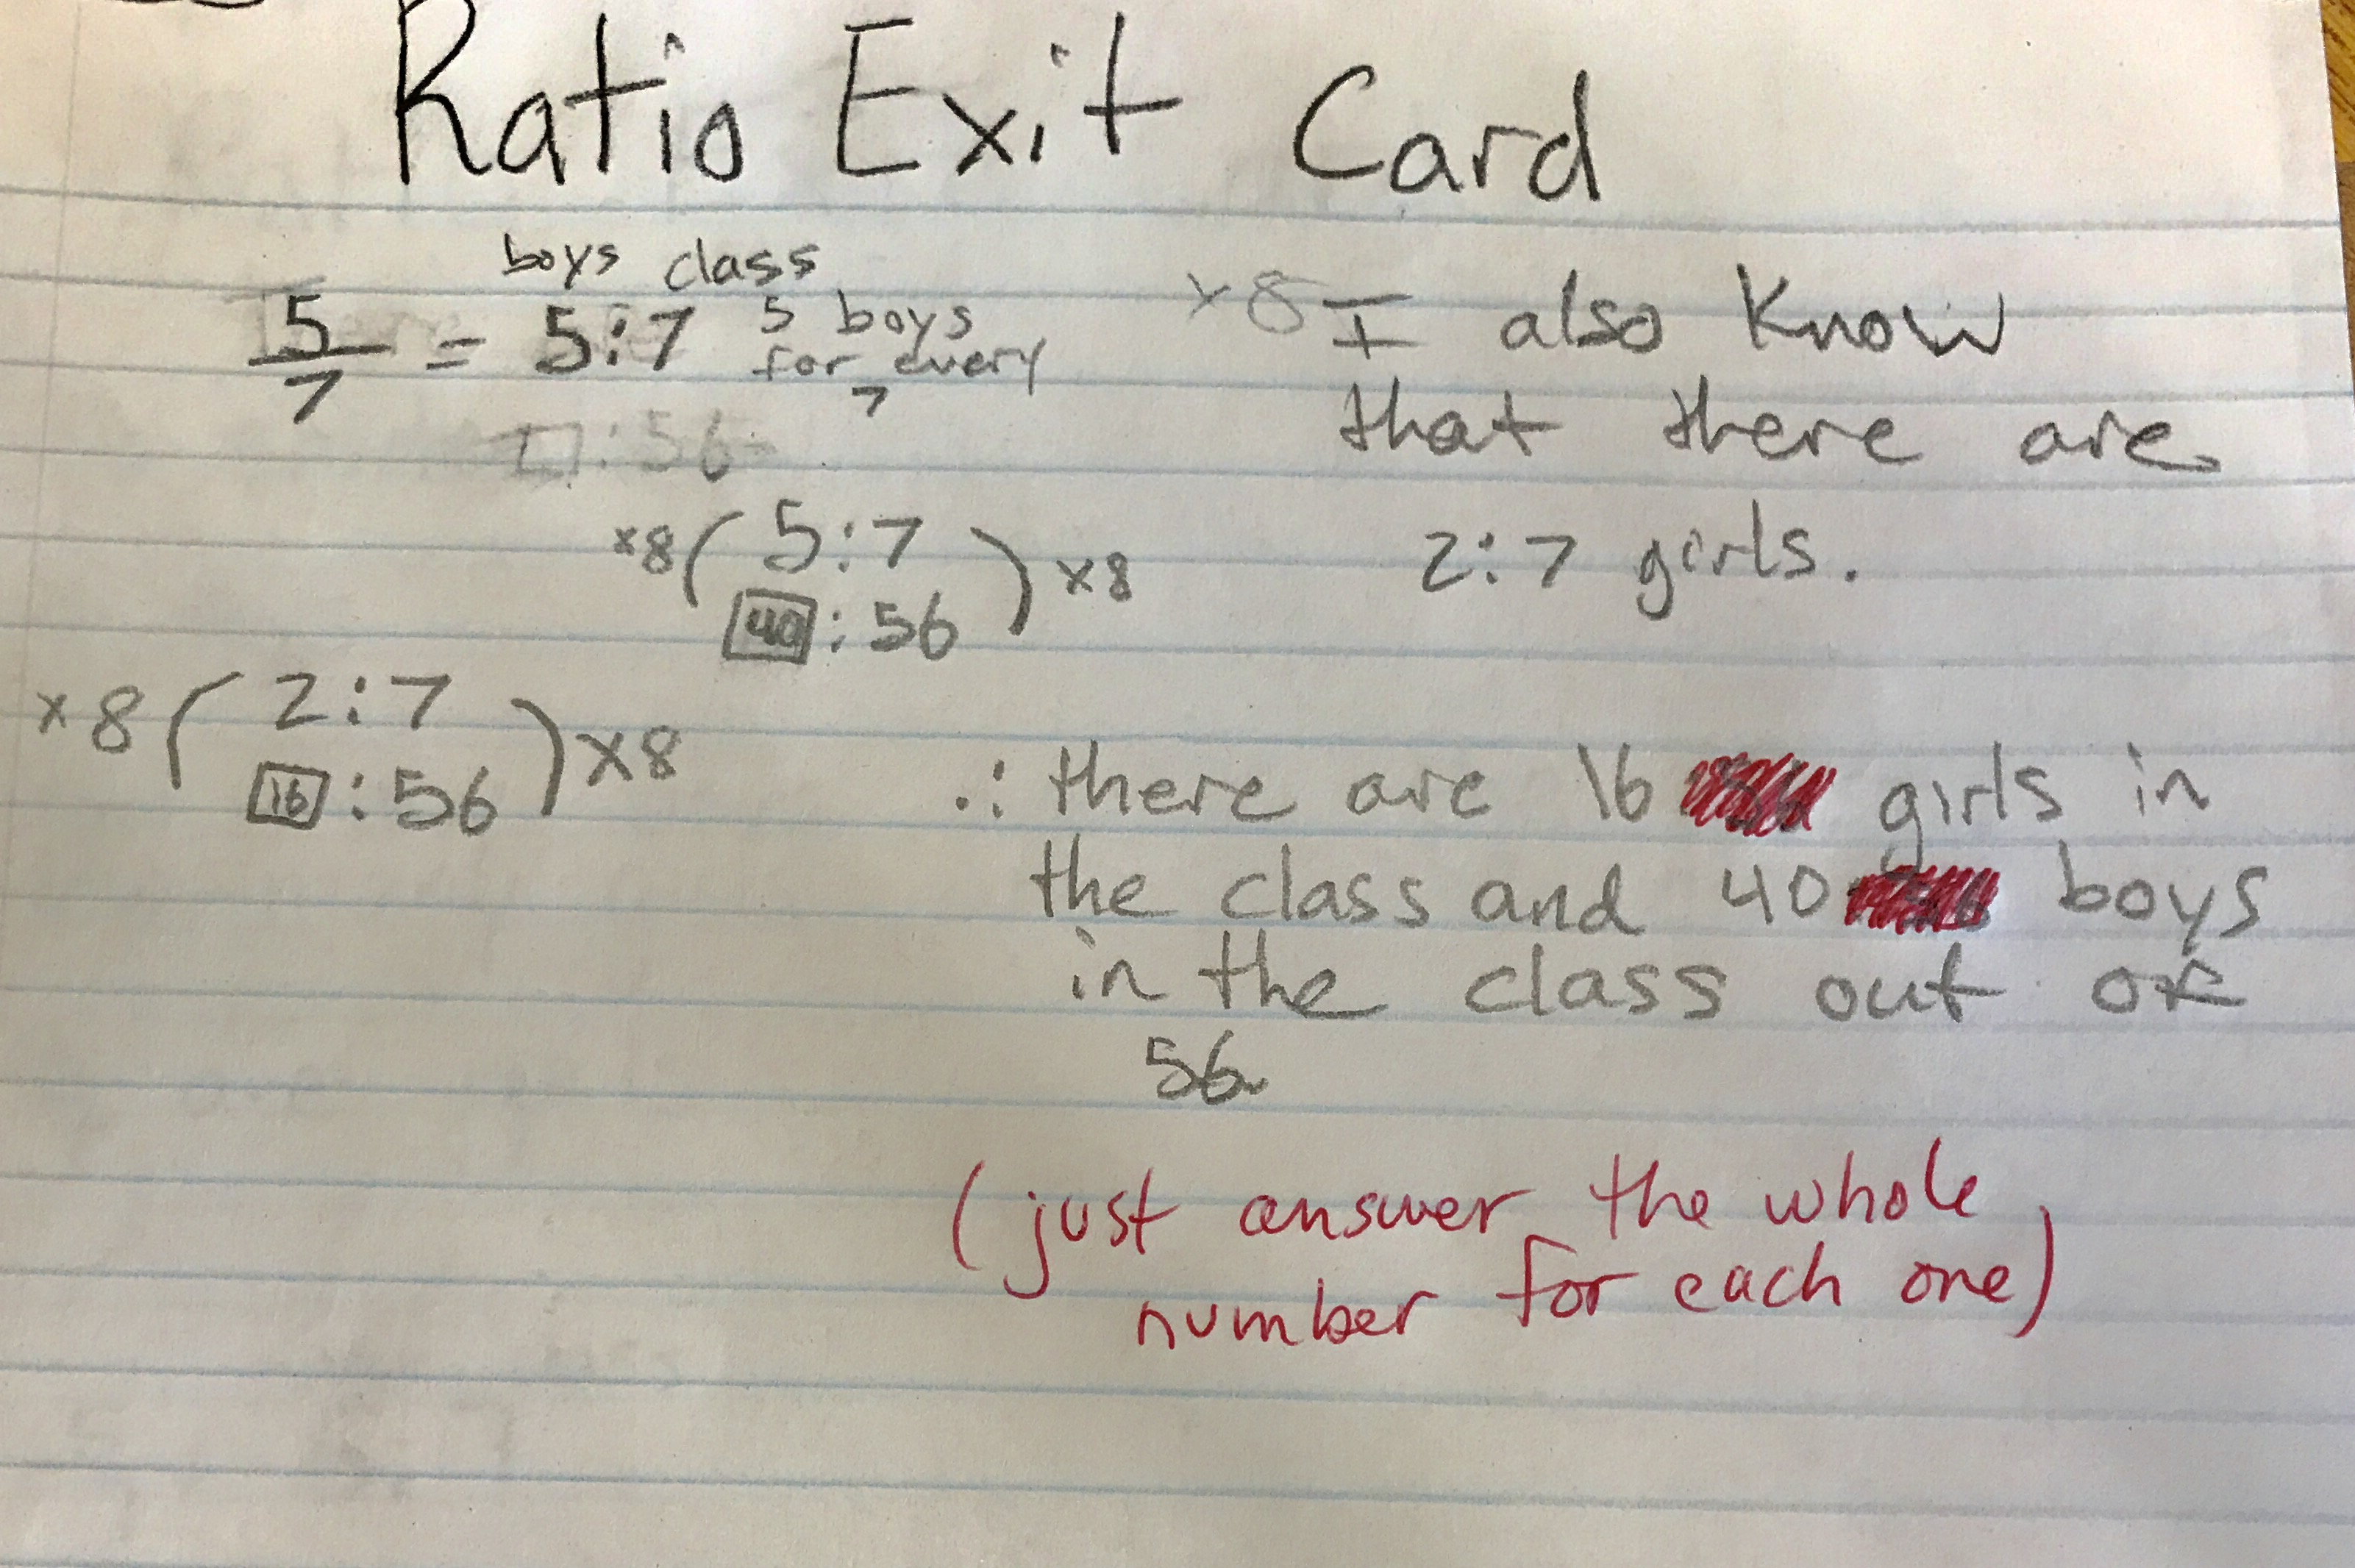 Ratio Exit Card
boys class
5/7 = 5:7 5 boys
for every
7
□:56
×8 ( 5:7 ) ×8
40:56
×8 I also know
that there are
2:7 girls.
×8 ( 2:7 ) ×8
16:56
∴ there are 16 girls in
the class and 40 boys
in the class out of
56.
(just answer the whole
number for each one)